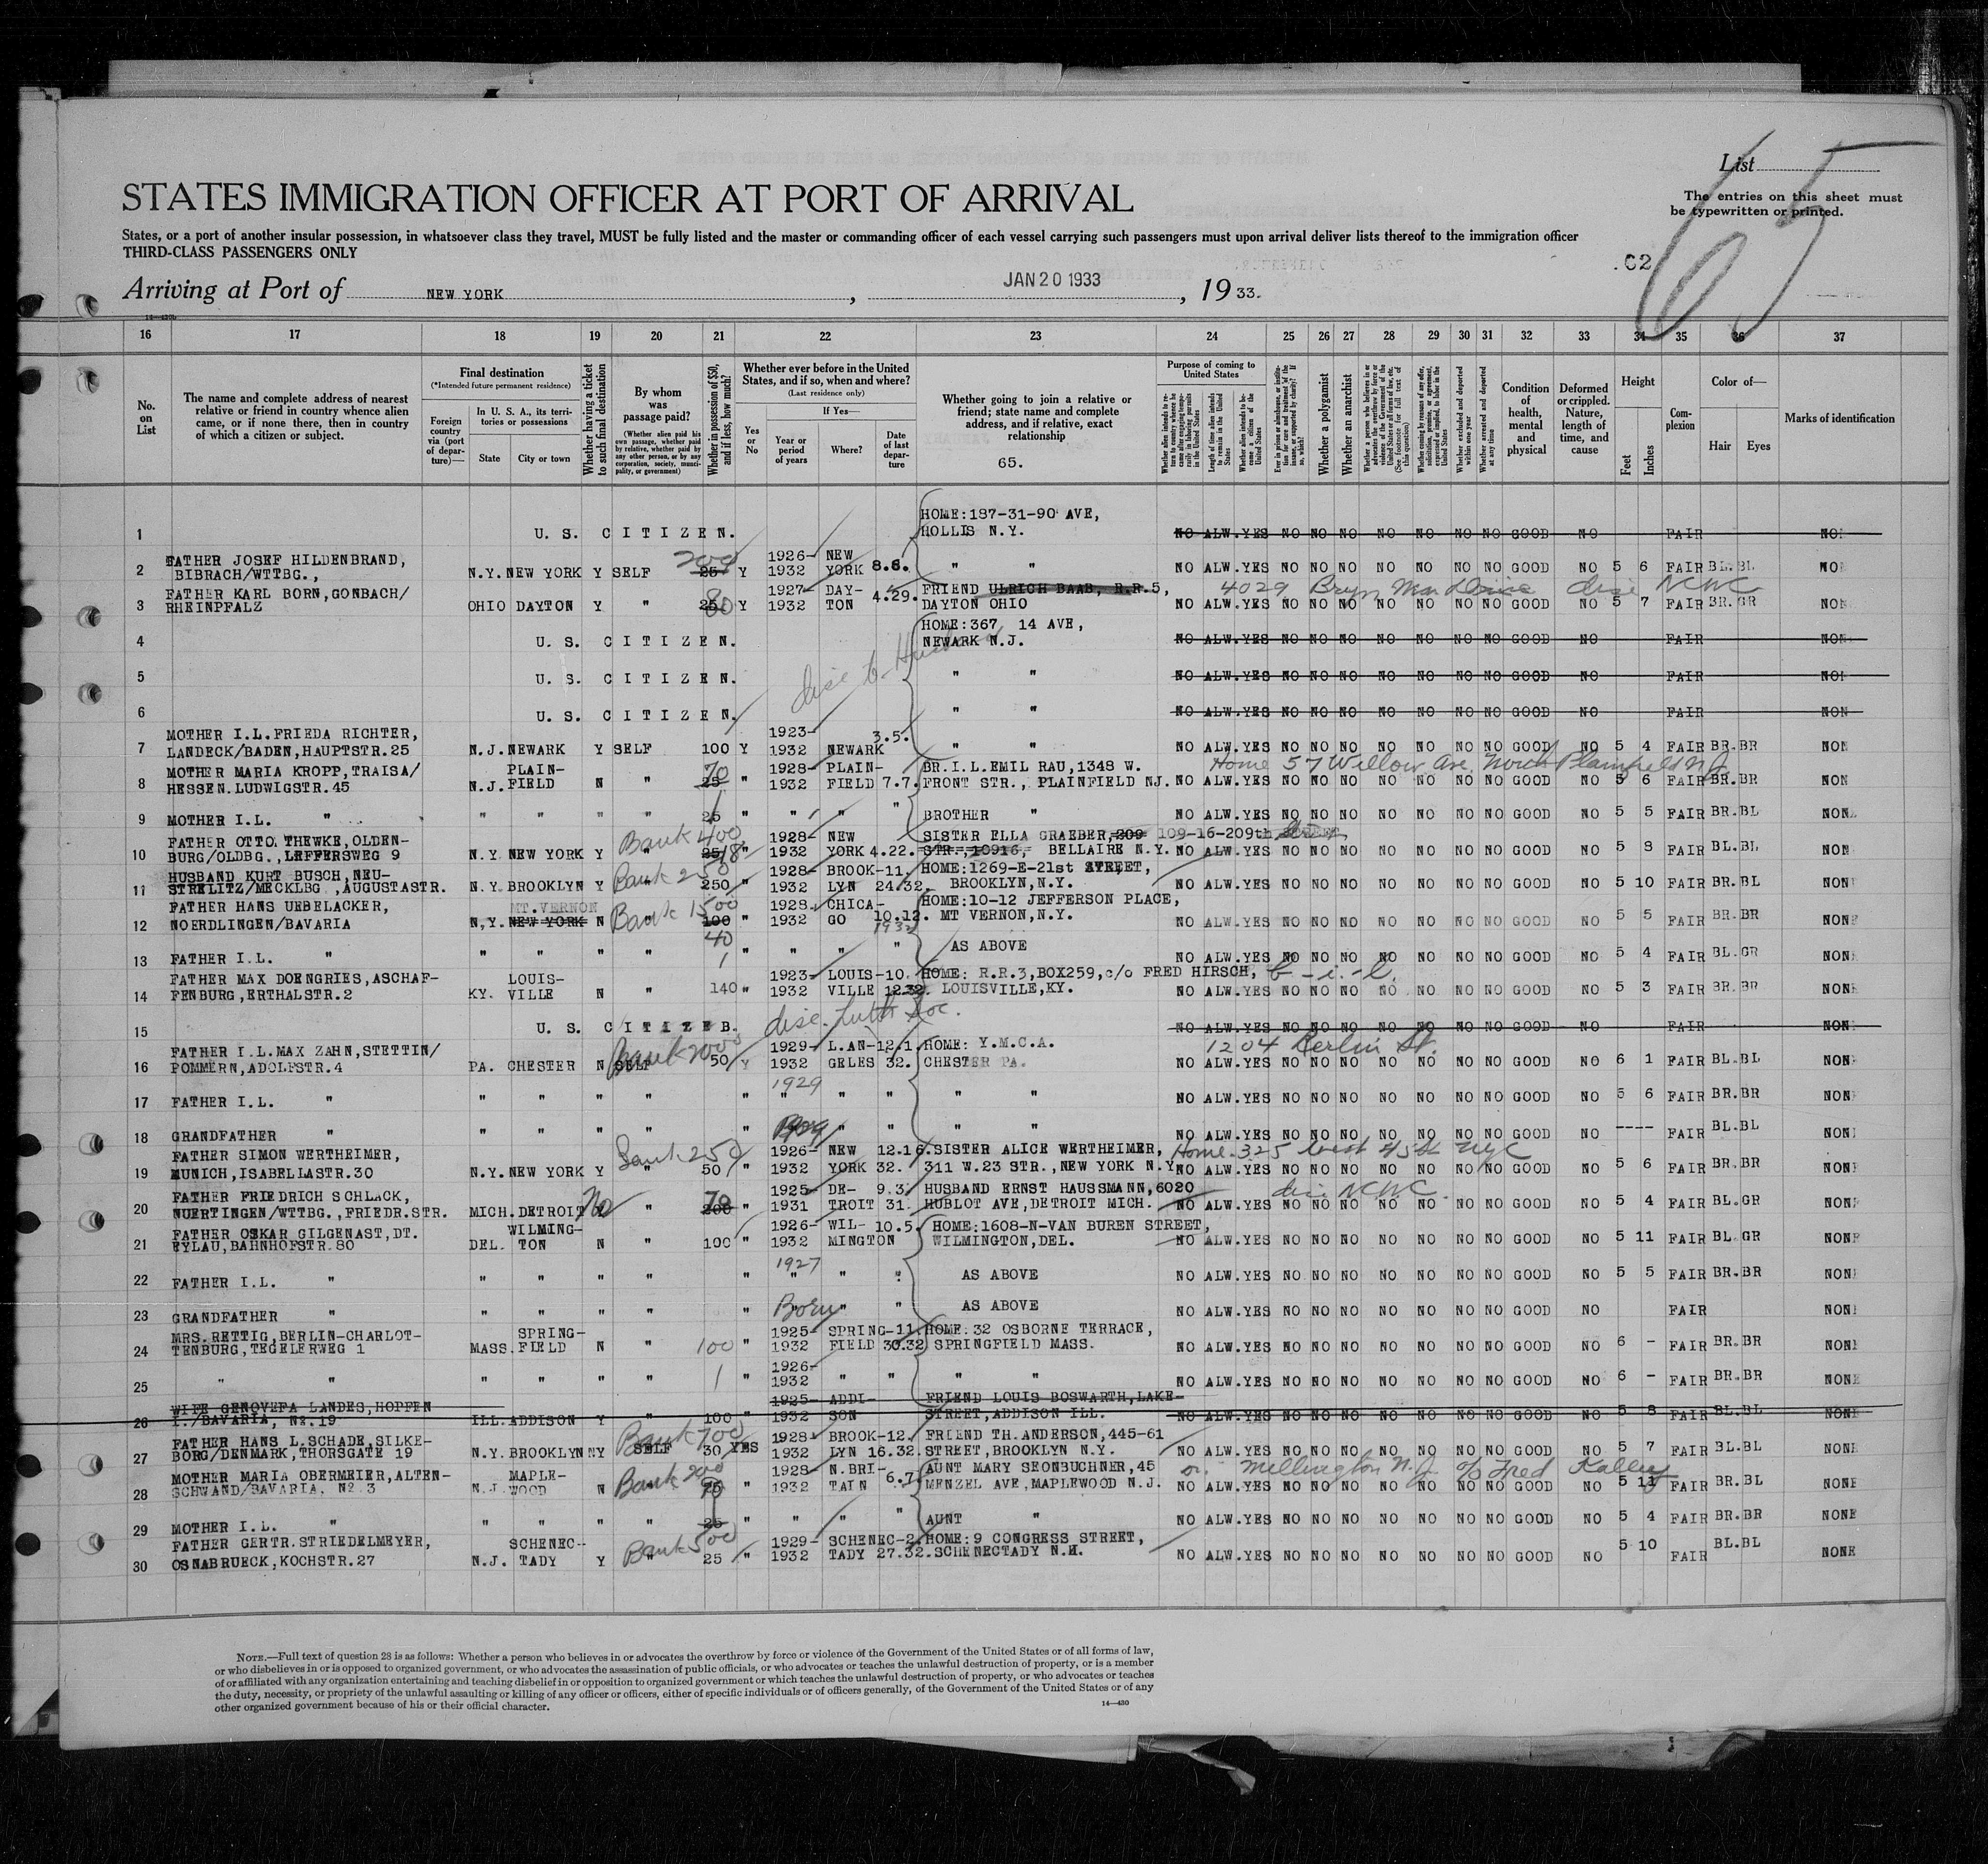 List
65
The entries on this sheet must
be typewritten or printed.
STATES IMMIGRATION OFFICER AT PORT OF ARRIVAL
States, or a port of another insular possession, in whatsoever class they travel, MUST be fully listed and the master or commanding officer of each vessel carrying such passengers must upon arrival deliver lists thereof to the immigration officer
THIRD-CLASS PASSENGERS ONLY
.C2
Arriving at Port of NEW YORK, JAN 20 1933, 19 33.
16 17 18 19 20 21 22 23 24 25 26 27 28 29 30 31 32 33 34 35 36 37
No. on List
The name and complete address of nearest relative or friend in country whence alien came, or if none there, then in country of which a citizen or subject.
Final destination
(*Intended future permanent residence)
Foreign country via (port of departure)—
In U. S. A., its territories or possessions
State
City or town
Whether having a ticket to such final destination
By whom was passage paid?
(Whether alien paid his own passage, whether paid by relative, whether paid by any other person, or by any corporation, society, municipality, or government)
Whether in possession of $50, and if less, how much?
Whether ever before in the United States, and if so, when and where?
(Last residence only)
Yes or No
If Yes—
Year or period of years
Where?
Date of last departure
Whether going to join a relative or friend; state name and complete address, and if relative, exact relationship
65.
Purpose of coming to United States
Length of time alien intends to remain in the United States
Whether alien intends to become a citizen of the United States
Whether a polygamist
Whether an anarchist
Whether excluded and deported within one year
Whether arrested and deported at any time
Condition of health, mental and physical
Deformed or crippled. Nature, length of time, and cause
Height
Feet
Inches
Complexion
Color of—
Hair
Eyes
Marks of identification
1 U. S. CITIZEN. HOME:187-31-90 AVE,
HOLLIS N.Y. NO ALW.YES NO NO NO NO NO NO NO GOOD NO FAIR
FATHER JOSEF HILDENBRAND, 200 1926- NEW
2 BIBRACH/WTTBG., N.Y. NEW YORK Y SELF 25 Y 1932 YORK 8.8. " " NO ALW.YES NO NO NO NO NO NO NO GOOD NO 5 6 FAIR BL.BL
FATHER KARL BORN,GONBACH/ 1927- DAY- FRIEND ULRICH BAAB, R.R.5, 4029 Bryn Maw Drive disc NCWC
3 RHEINPFALZ OHIO DAYTON Y " 25 80 Y 1932 TON 4.29. DAYTON OHIO NO ALW.YES NO NO NO NO NO NO NO GOOD NO 5 7 FAIR BR.GR
HOME:367 14 AVE,
4 U. S. CITIZEN. NEWARK N.J. NO ALW.YES NO NO NO NO NO NO NO GOOD NO FAIR
disc to Husband
5 U. S. CITIZEN. " " NO ALW.YES NO NO NO NO NO NO NO GOOD NO FAIR
6 U. S. CITIZEN. " " NO ALW.YES NO NO NO NO NO NO NO GOOD NO FAIR
MOTHER I.L.FRIEDA RICHTER, 1923- 3.5.
7 LANDECK/BADEN,HAUPTSTR.25 N.J. NEWARK Y SELF 100 Y 1932 NEWARK " " NO ALW.YES NO NO NO NO NO NO NO GOOD NO 5 4 FAIR BR.BR
MOTHER MARIA KROPP,TRAISA/ PLAIN- 70 1928- PLAIN- BR.I.L.EMIL RAU,1348 W. Home 57 Willow Ave. North Plainfield N.J.
8 HESSEN.LUDWIGSTR.45 N.J. FIELD N " 25 " 1932 FIELD 7.7. FRONT STR., PLAINFIELD NJ. NO ALW.YES NO NO NO NO NO NO NO GOOD NO 5 6 FAIR BR.BR
9 MOTHER I.L. " " " " " 25 1 " " " " BROTHER " NO ALW.YES NO NO NO NO NO NO NO GOOD NO 5 5 FAIR BR.BL
FATHER OTTO THEWKE,OLDEN- Bank 400 1928- NEW SISTER ELLA GRAEBER,209 109-16-209th STREET
10 BURG/OLDBG.,LEFFERSWEG 9 N.Y. NEW YORK Y " 25 18 " 1932 YORK 4.22. STR.,10916, BELLAIRE N.Y. NO ALW.YES NO NO NO NO NO NO NO GOOD NO 5 8 FAIR BL.BL
HUSBAND KURT BUSCH,NEU- Bank 250 1928- BROOK-11. HOME:1269-E-21st STREET,
11 STRELITZ/MECKLBG ,AUGUSTASTR. N.Y. BROOKLYN Y 250 " 1932 LYN 24.32. BROOKLYN,N.Y. NO ALW.YES NO NO NO NO NO NO NO GOOD NO 5 10 FAIR BR.BL NON
FATHER HANS UEBELACKER, MT.VERNON Bank 1500 1928. CHICA- HOME:10-12 JEFFERSON PLACE,
12 NOERDLINGEN/BAVARIA N,Y. NEW YORK N 100 40 " 1932 GO 10.12. 1932 MT VERNON,N.Y. NO ALW.YES NO NO NO NO NO NO NO GOOD NO 5 5 FAIR BR.BR NONE
13 FATHER I.L. " " " " " 1 " " " " AS ABOVE NO ALW.YES NO NO NO NO NO NO NO GOOD NO 5 4 FAIR BL.GR NON
FATHER MAX DOENGRIES,ASCHAF- LOUIS- 1923- LOUIS-10. HOME: R.R.3,BOX259,c/o FRED HIRSCH, b-i-l.
14 FENBURG,ERTHALSTR.2 KY. VILLE N " 140 " 1932 VILLE 12.32. LOUISVILLE,KY. NO ALW.YES NO NO NO NO NO NO NO GOOD NO 5 3 FAIR BR.BR NONE
disc. Luth Soc.
15 U. S. CITIZEB. NO ALW.YES NO NO NO NO NO NO NO GOOD NO FAIR NON
FATHER I.L.MAX ZAHN,STETTIN/ Bank 2000 1929- L.AN-12.1. HOME: Y.M.C.A. 1204 Berlin St.
16 POMMERN,ADOLFSTR.4 PA. CHESTER N SELF 50 Y 1932 GELES 32. CHESTER PA. NO ALW.YES NO NO NO NO NO NO NO GOOD NO 6 1 FAIR BL.BL NON
1929
17 FATHER I.L. " " " " " " " " " " " NO ALW.YES NO NO NO NO NO NO NO GOOD NO 5 6 FAIR BR.BR NON
18 GRANDFATHER " " " " " " " " " " NO ALW.YES NO NO NO NO NO NO NO GOOD NO ---- FAIR BL.BL NON
FATHER SIMON WERTHEIMER, Bank 250 1926- NEW 12.16. SISTER ALICE WERTHEIMER, Home. 325 West 45th NYC
19 MUNICH,ISABELLASTR.30 N.Y. NEW YORK Y " 50 " 1932 YORK 32. 311 W.23 STR.,NEW YORK N.Y. NO ALW.YES NO NO NO NO NO NO NO GOOD NO 5 6 FAIR BR.BR NON
FATHER FRIEDRICH SCHLACK, No 70 1925- DE- 9.3. HUSBAND ERNST HAUSSMANN,6020 disc NCWC.
20 NUERTINGEN/WTTBG.,FRIEDR.STR. MICH. DETROIT " 200 " 1931 TROIT 31. HUBLOT AVE,DETROIT MICH. NO ALW.YES NO NO NO NO NO NO NO GOOD NO 5 4 FAIR BL.GR NON
FATHER OSKAR GILGENAST,DT. WILMING- 1926- WIL- 10.5. HOME:1608-N-VAN BUREN STREET,
21 EYLAU,BAHNHOFSTR.80 DEL. TON N " 100 " 1932 MINGTON WILMINGTON,DEL. NO ALW.YES NO NO NO NO NO NO NO GOOD NO 5 11 FAIR BL.GR NON
1927
22 FATHER I.L. " " " " " " " " " AS ABOVE NO ALW.YES NO NO NO NO NO NO NO GOOD NO 5 5 FAIR BR.BR NON
23 GRANDFATHER " " " " " " Born " " AS ABOVE NO ALW.YES NO NO NO NO NO NO NO GOOD NO FAIR NON
MRS.RETTIG,BERLIN-CHARLOT- SPRING- 1925- SPRING-11. HOME:32 OSBORNE TERRACE,
24 TENBURG,TEGELERWEG 1 MASS. FIELD N " 100 " 1932 FIELD 30.32 SPRINGFIELD MASS. NO ALW.YES NO NO NO NO NO NO NO GOOD NO 6 - FAIR BR.BR NON
1926-
25 " " " " " " 1 " 1932 " " " " NO ALW.YES NO NO NO NO NO NO NO GOOD NO 6 - FAIR BR.BR NONE
WIFE GENOVEFA LANDES,HOPFEN 1925- ADDI- FRIEND LOUIS BOSWARTH,LAKE-
26 I./BAVARIA, No.19 ILL. ADDISON Y " 100 " 1932 SON STREET,ADDISON ILL. NO ALW.YES NO NO NO NO NO NO NO GOOD NO 5 8 FAIR BL.BL NONE
FATHER HANS L.SCHADE,SILKE- Bank 700 1928- BROOK-12. FRIEND TH.ANDERSON,445-61
27 BORG/DENMARK,THORSGATE 19 N.Y. BROOKLYN NY SELF 30 YES 1932 LYN 16.32. STREET,BROOKLYN N.Y. NO ALW.YES NO NO NO NO NO NO NO GOOD NO 5 7 FAIR BL.BL NONE
MOTHER MARIA OBERMEIER,ALTEN- MAPLE- Bank 200 1928- N.BRI- 6.7. AUNT MARY SEONBUCHNER,45 or. Millington N.J. c/o Fred
28 SCHWAND/BAVARIA, No 3 N.J. WOOD N " " 1932 TAIN MENZEL AVE,MAPLEWOOD N.J. NO ALW.YES NO NO NO NO NO NO NO GOOD NO 5 11 FAIR BR.BL NONE
29 MOTHER I.L. " " " " " 25 " " " " AUNT " NO ALW.YES NO NO NO NO NO NO NO GOOD NO 5 4 FAIR BR.BR NONE
FATHER GERTR.STRIEDELMEYER, SCHENEC- Bank 500 1929- SCHENEC-2. HOME:9 CONGRESS STREET,
30 OSNABRUECK,KOCHSTR.27 N.J. TADY Y " 25 " 1932 TADY 27.32. SCHENECTADY N.H. NO ALW.YES NO NO NO NO NO NO NO GOOD NO 5 10 FAIR BL.BL NONE
NOTE.—Full text of question 28 is as follows: Whether a person who believes in or advocates the overthrow by force or violence of the Government of the United States or of all forms of law,
or who disbelieves in or is opposed to organized government, or who advocates the assassination of public officials, or who advocates or teaches the unlawful destruction of property, or is a member
of or affiliated with any organization entertaining and teaching disbelief in or opposition to organized government or which teaches the unlawful destruction of property, or who advocates or teaches
the duty, necessity, or propriety of the unlawful assaulting or killing of any officer or officers, either of specific individuals or of officers generally, of the Government of the United States or of any
other organized government because of his or their official character.
14—430